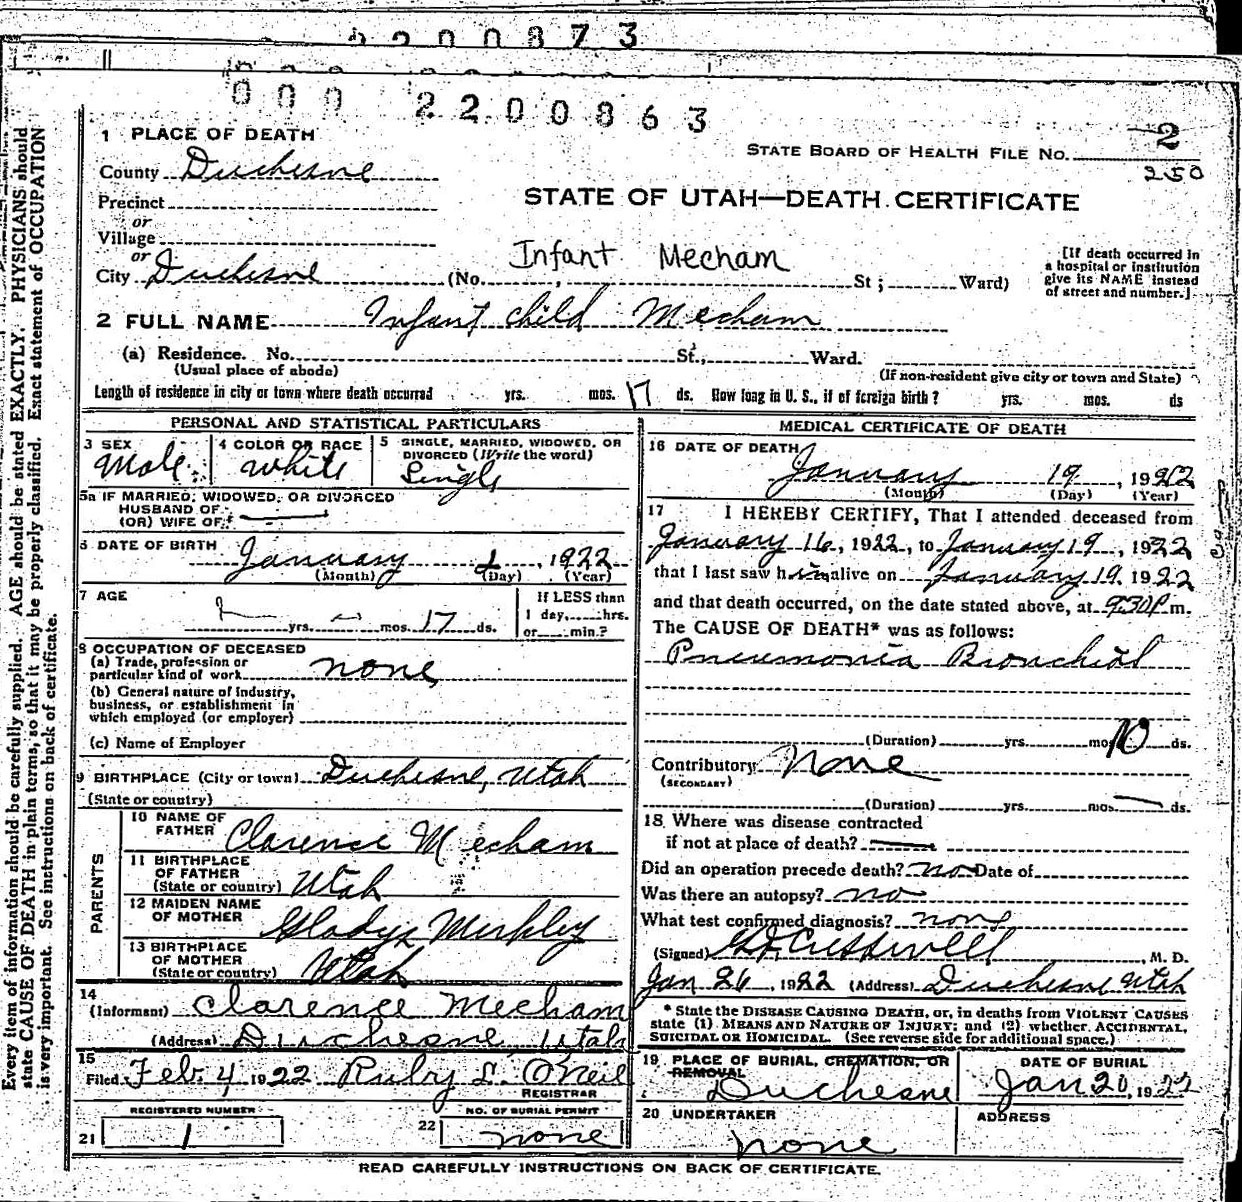 2200873
000 2200863
1 PLACE OF DEATH
STATE BOARD OF HEALTH FILE NO. 2
250
County Duchesne
STATE OF UTAH—DEATH CERTIFICATE
Precinct
or
Village
or
City Duchesne (No. Infant Mecham St; Ward)
[If death occurred in
a hospital or institution
give its NAME instead
of street and number.]
2 FULL NAME Infant child Mecham
(a) Residence. No. St., Ward.
(Usual place of abode) (If non-resident give city or town and State)
Length of residence in city or town where death occurred yrs. mos. 17 ds. How long in U. S., if of foreign birth? yrs. mos. ds
PERSONAL AND STATISTICAL PARTICULARS
3 SEX Male
4 COLOR OR RACE White
5 SINGLE, MARRIED, WIDOWED, OR
DIVORCED (Write the word)
Single
5a IF MARRIED, WIDOWED, OR DIVORCED
HUSBAND OF
(OR) WIFE OF
6 DATE OF BIRTH January 2, 1922
(Month) (Day) (Year)
7 AGE yrs. mos. 17 ds.
If LESS than
1 day, hrs.
or min.?
8 OCCUPATION OF DECEASED
(a) Trade, profession or
particular kind of work none
(b) General nature of industry,
business, or establishment in
which employed (or employer)
(c) Name of Employer
9 BIRTHPLACE (City or town) Duchesne, Utah
(State or country)
PARENTS
10 NAME OF
FATHER Clarence Mecham
11 BIRTHPLACE
OF FATHER
(State or country) Utah
12 MAIDEN NAME
OF MOTHER Gladys Merkley
13 BIRTHPLACE
OF MOTHER
(State or country) Utah
14
(Informant) Clarence Mecham
(Address) Duchesne, Utah
15
Filed Feb. 4 1922 Ruby L. O'Neil
REGISTRAR
REGISTERED NUMBER
21 1
NO. OF BURIAL PERMIT
22 none
MEDICAL CERTIFICATE OF DEATH
16 DATE OF DEATH
January 19, 1922
(Month) (Day) (Year)
17 I HEREBY CERTIFY, That I attended deceased from
January 16, 1922, to January 19, 1922
that I last saw him alive on January 19, 1922
and that death occurred, on the date stated above, at 9:30 P m.
The CAUSE OF DEATH* was as follows:
Pneumonia Bronchial
(Duration) yrs. mos. 10 ds.
Contributory None
(SECONDARY)
(Duration) yrs. mos. ds.
18 Where was disease contracted
if not at place of death?
Did an operation precede death? no Date of
Was there an autopsy? no
What test confirmed diagnosis? none
(Signed) M. D.
Jan 26, 1922 (Address) Duchesne Utah
* State the DISEASE CAUSING DEATH, or, in deaths from VIOLENT CAUSES
state (1) MEANS AND NATURE OF INJURY; and (2) whether ACCIDENTAL,
SUICIDAL OR HOMICIDAL. (See reverse side for additional space.)
19 PLACE OF BURIAL, CREMATION, OR
REMOVAL
Duchesne
DATE OF BURIAL
Jan 20, 1922
20 UNDERTAKER
none
ADDRESS
READ CAREFULLY INSTRUCTIONS ON BACK OF CERTIFICATE.
Every item of information should be carefully supplied. AGE should be stated EXACTLY. PHYSICIANS should
state CAUSE OF DEATH in plain terms, so that it may be properly classified. Exact statement of OCCUPATION
is very important. See instructions on back of certificate.